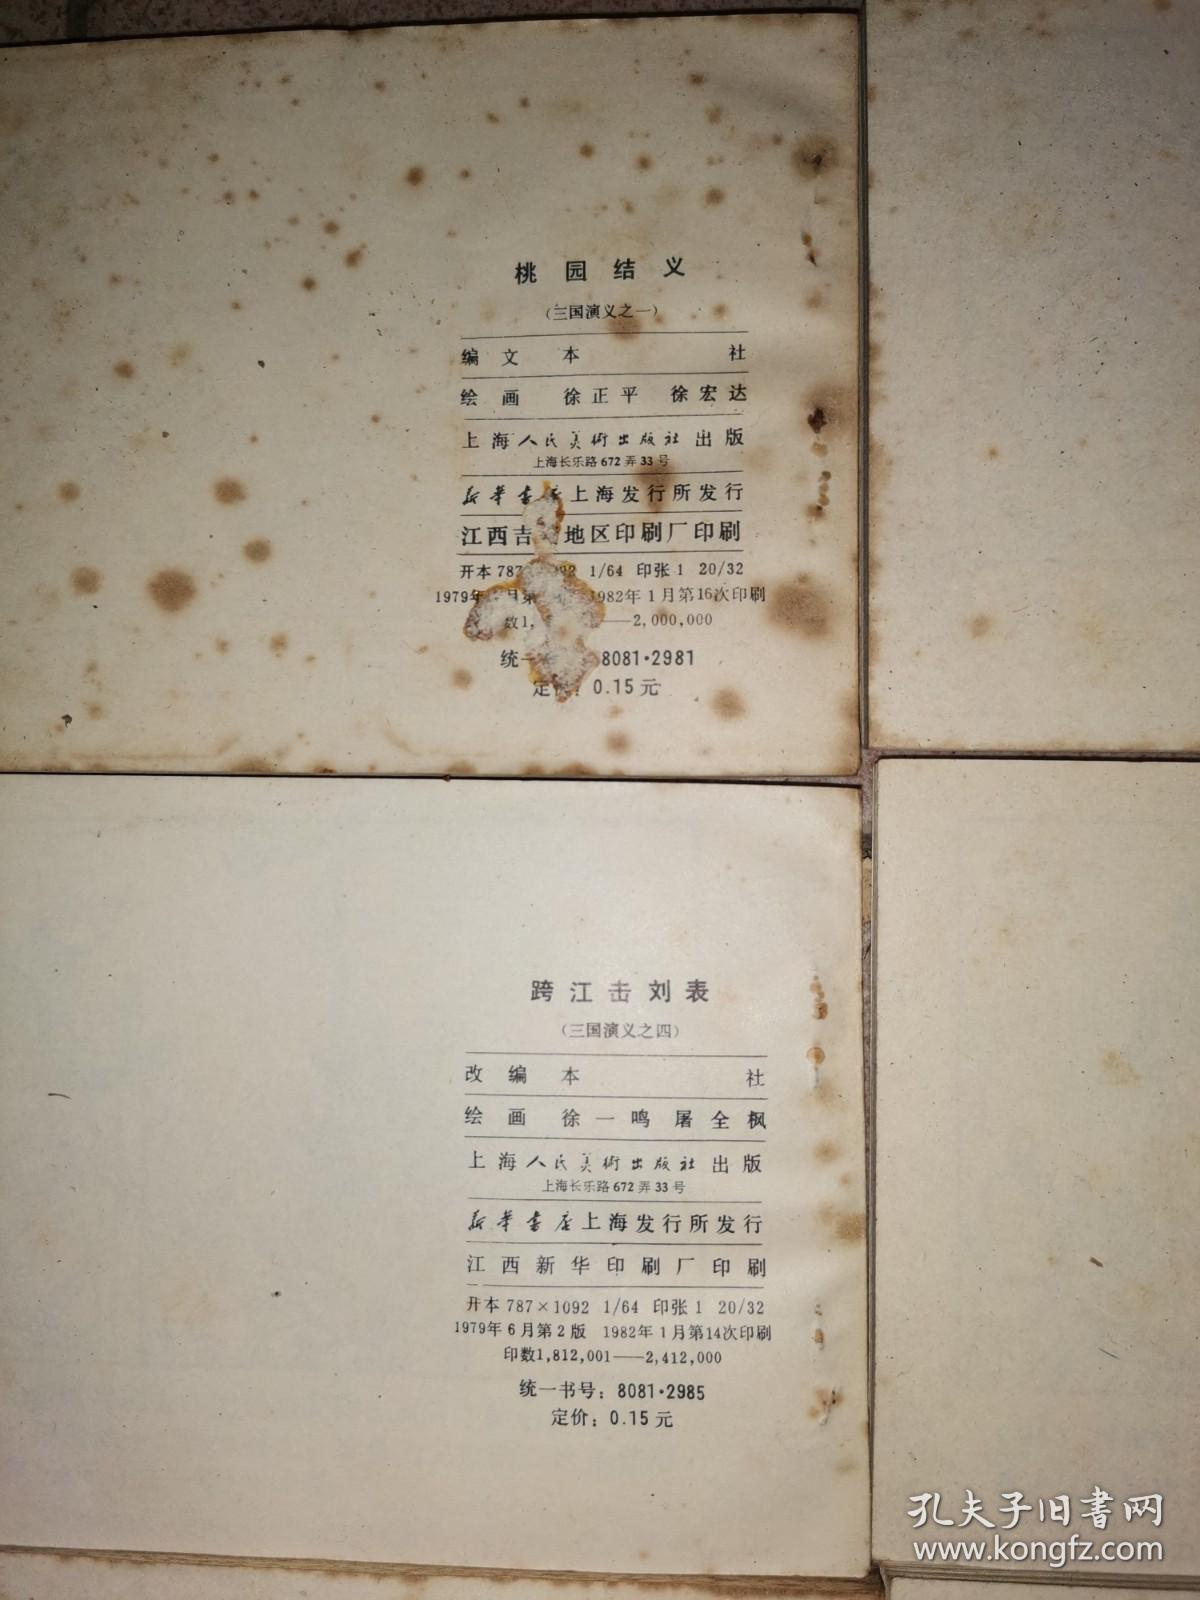 桃园结义
(三国演义之一)
编文 本 社
绘画 徐正平 徐宏达
上海人民美術出版社出版
上海长乐路672弄33号
新华书 上海发行所发行
江西吉 地区印刷厂印刷
开本787 1/64 印张1 20/32
1979年 1982年1月第16次印刷
数1, ——2,000,000
统一 8081·2981
定价: 0.15元
跨江击刘表
(三国演义之四)
改编 本 社
绘画 徐一鸣 屠全枫
上海人民美術出版社出版
上海长乐路672弄33号
新华书店上海发行所发行
江西新华印刷厂印刷
开本787×1092 1/64 印张1 20/32
1979年6月第2版 1982年1月第14次印刷
印数1,812,001——2,412,000
统一书号: 8081·2985
定价: 0.15元
孔夫子旧书网
www.kongfz.com